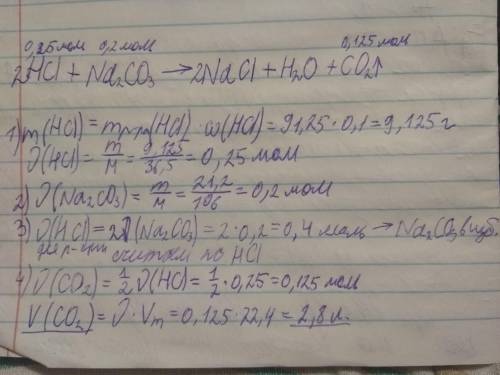 0,25 мол 0,2 мол 0,125 мол
2HCl + Na₂CO₃ → 2NaCl + H₂O + CO₂↑
1) m(HCl) = mр-ра(HCl) · ω(HCl) = 91,25 · 0,1 = 9,125 г
ν(HCl) = m/M = 9,125/36,5 = 0,25 мол
2) ν(Na₂CO₃) = m/M = 21,2/106 = 0,2 мол
3) ν(HCl) = 2ν(Na₂CO₃) = 2 · 0,2 = 0,4 моль → Na₂CO₃ в изб.
для р-ции считаем по HCl
4) ν(CO₂) = 1/2 ν(HCl) = 1/2 · 0,25 = 0,125 мол
V(CO₂) = ν · Vm = 0,125 · 22,4 = 2,8 л.